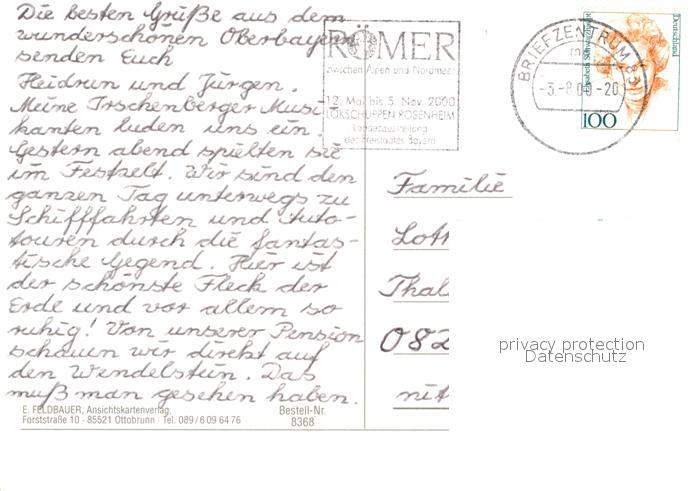 Die besten Grüße aus dem
wunderschönen Oberbayern
senden Euch
Heidrun und Jürgen.
Meine Irschenberger Musi-
kanten luden uns ein.
Gestern abend spielten sie
im Festzelt. Wir sind den
ganzen Tag unterwegs zu
Schifffahrten und Auto-
touren durch die fantas-
tische Gegend. Hier ist
der schönste Fleck der
Erde und vor allem so
ruhig! Von unserer Pension
schauen wir direkt auf
den Wendelstein. Das
muß man gesehen haben.
E. FELDBAUER, Ansichtskartenverlag,
Forststraße 10 · 85521 Ottobrunn · Tel. 089/6 09 64 76
Bestell-Nr.
8368
RÖMER
zwischen Alpen und Nordmeer
12. Mai bis 5. Nov. 2000
LOKSCHUPPEN ROSENHEIM
Landesausstellung
des Freistaates Bayern
BRIEFZENTRUM 83
-3.-8.00-20
Deutschland
100
Familie
Lott
Thal
082
nit
privacy protection
Datenschutz